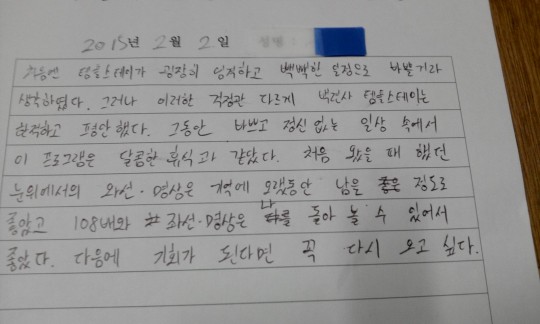 2015년 2월 2일
처음엔 템플스테이가 굉장히 엄격하고 빽빽한 일정으로 바쁠거라
생각하였다. 그러나 이러한 걱정관 다르게 백련사 템플스테이는
한적하고 평안했다. 그동안 바쁘고 정신 없는 일상 속에서
이 프로그램은 달콤한 휴식과 같았다. 처음 왔을 때 했던
눈위에서의 와선·명상은 기억에 오랫동안 남을 정도로
좋았고 108배와 좌선·명상은 나를 돌아 볼 수 있어서
좋았다. 다음에 기회가 된다면 꼭 다시 오고 싶다.